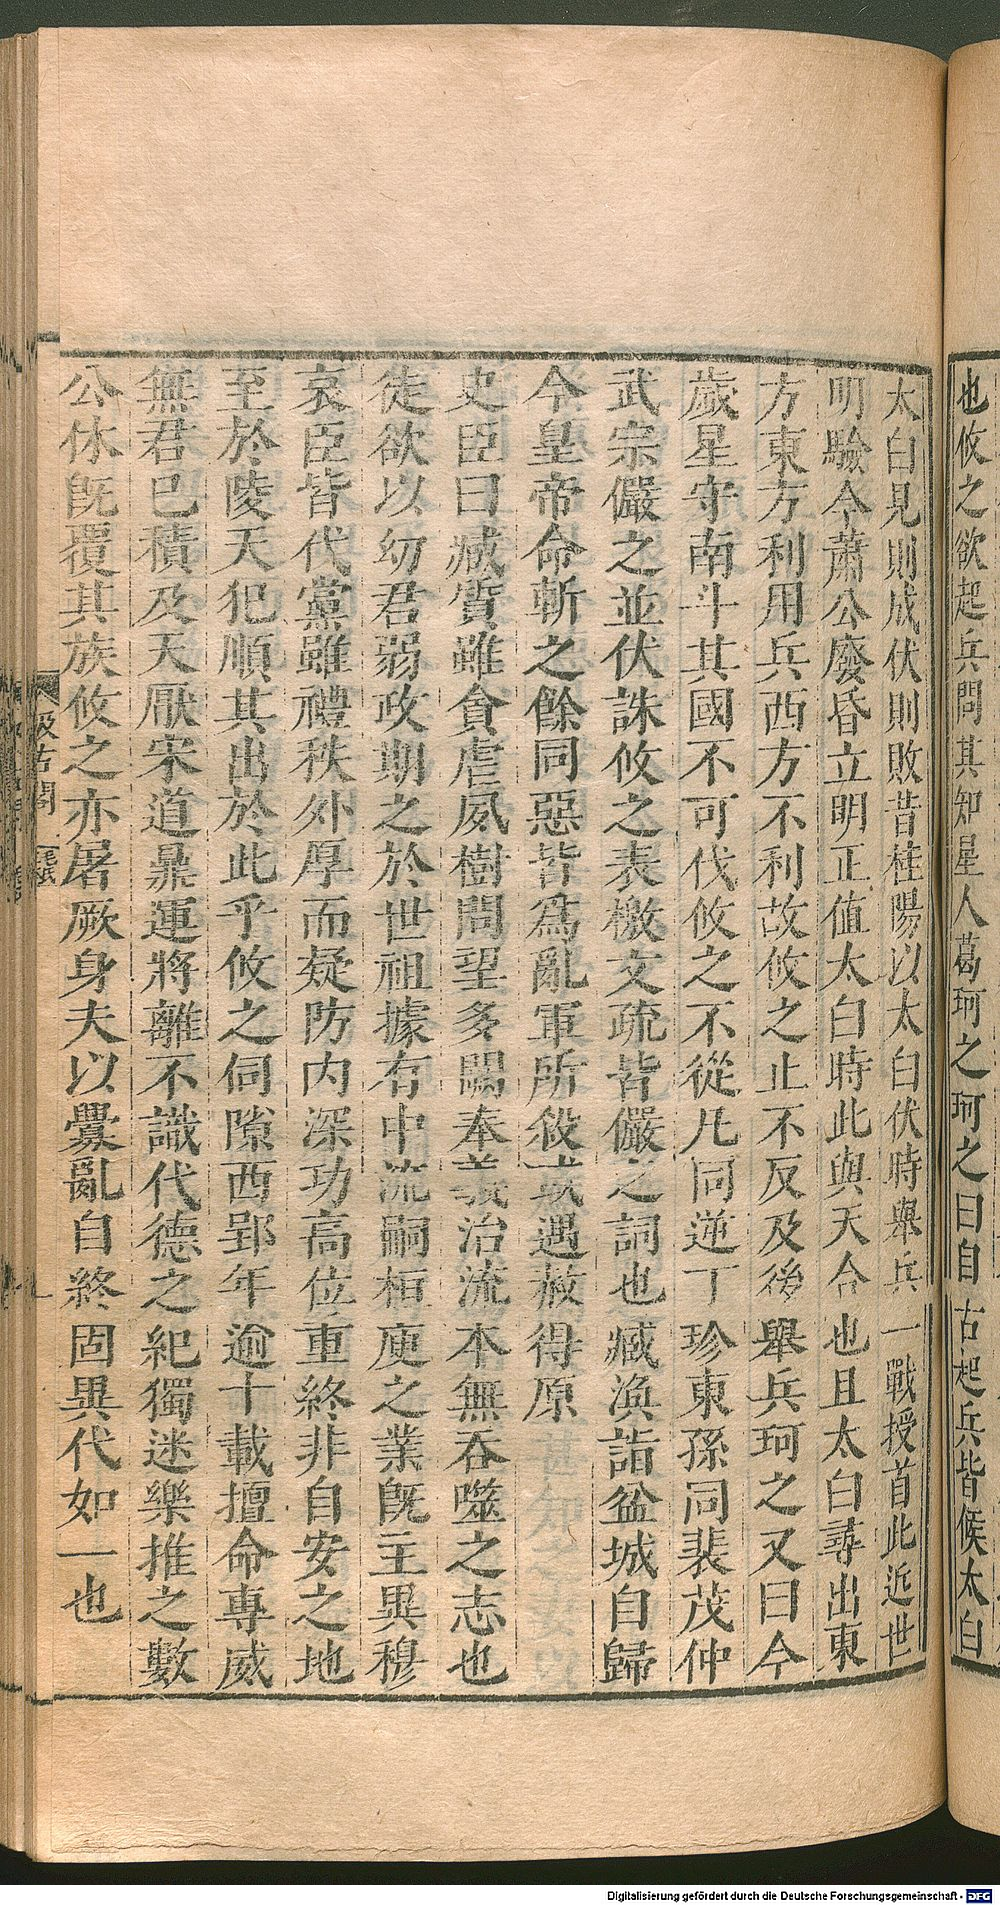 也攸之欲起兵問其知星人葛珂之珂之曰自古起兵皆候太白
太白見則成伏則敗昔桂陽以太白伏時舉兵一戰授首此近世
明驗今蕭公廢昏立明正值太白時此與天合也且太白尋出東
方東方利用兵西方不利故攸之止不反及後舉兵珂之又曰今
歲星守南斗其國不可伐攸之不從凡同逆丁珍東孫同裴茂仲
武宗儼之並伏誅攸之表檄文疏皆儼之詞也臧渙詣盆城自歸
今皇帝命斬之餘同惡皆爲亂軍所殺或遇赦得原
史臣曰臧質雖貪虐夙樹問望多闕奉義治流本無吞噬之志也
徒欲以幼君弱政期之於世祖據有中流嗣桓庾之業既主異穆
哀臣皆代黨雖禮秩外厚而疑防内深功高位重終非自安之地
至於陵天犯順其出於此乎攸之伺隙西郢年逾十載擅命專威
無君已積及天厭宋道鼎運將離不識代德之紀獨迷樂推之數
公休既覆其族攸之亦屠厥身夫以釁亂自終固異代如一也
汲古閣
毛氏
Digitalisierung gefördert durch die Deutsche Forschungsgemeinschaft - DFG